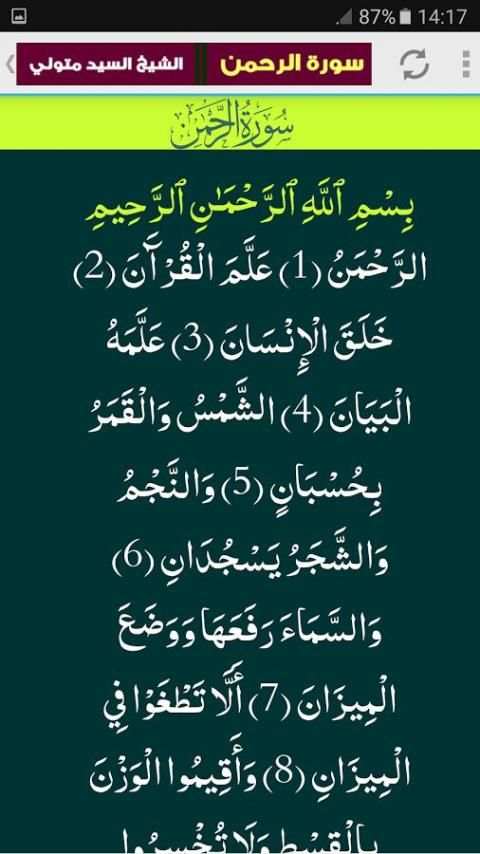 87% 14:17
سورة الرحمن الشيخ السيد متولي
سُورَةُ الرَّحْمَٰن
بِسْمِ ٱللَّهِ ٱلرَّحْمَـٰنِ ٱلرَّحِيمِ
الرَّحْمَنُ (1) عَلَّمَ الْقُرْآنَ (2)
خَلَقَ الْإِنْسَانَ (3) عَلَّمَهُ
الْبَيَانَ (4) الشَّمْسُ وَالْقَمَرُ
بِحُسْبَانٍ (5) وَالنَّجْمُ
وَالشَّجَرُ يَسْجُدَانِ (6)
وَالسَّمَاءَ رَفَعَهَا وَوَضَعَ
الْمِيزَانَ (7) أَلَّا تَطْغَوْا فِي
الْمِيزَانِ (8) وَأَقِيمُوا الْوَزْنَ
بِالْقِسْطِ وَلَا تُخْسِرُوا